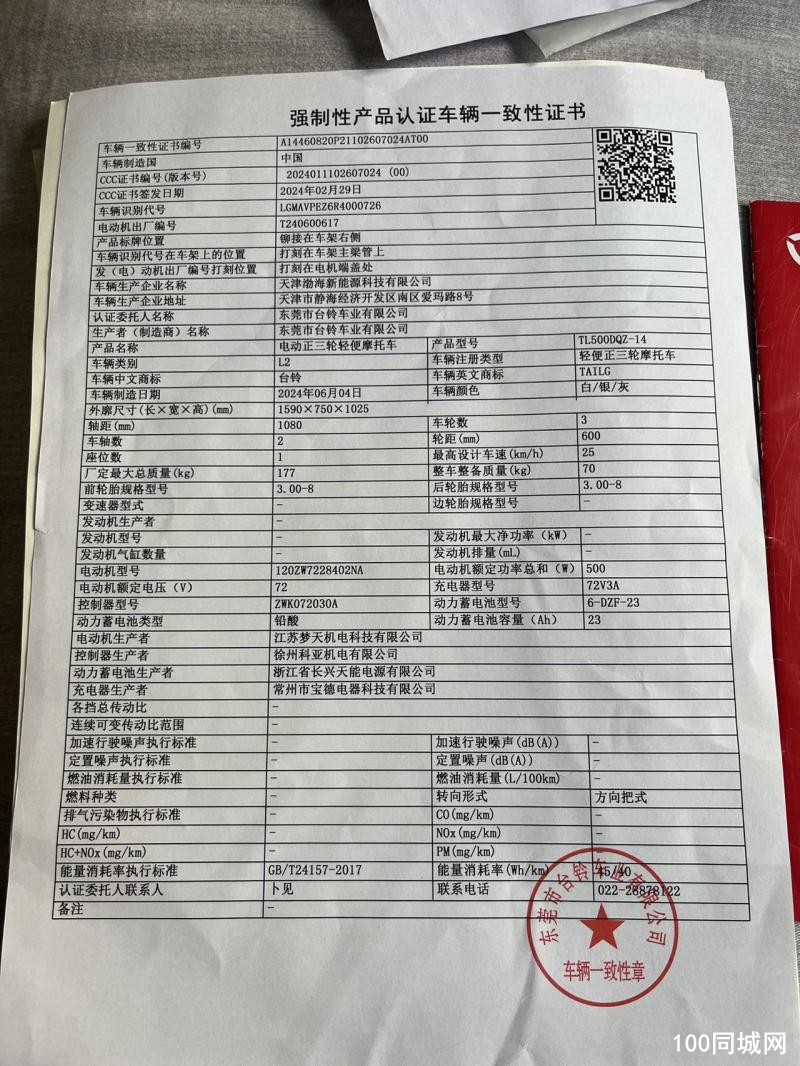 强制性产品认证车辆一致性证书
车辆一致性证书编号 A14460820P21102607024AT00
车辆制造国 中国
CCC证书编号(版本号) 2024011102607024 (00)
CCC证书签发日期 2024年02月29日
车辆识别代号 LGMAVPEZ6R4000726
电动机出厂编号 T240600617
产品标牌位置 铆接在车架右侧
车辆识别代号在车架上的位置 打刻在车架主梁管上
发（电）动机出厂编号打刻位置 打刻在电机端盖处
车辆生产企业名称 天津渤海新能源科技有限公司
车辆生产企业地址 天津市静海经济开发区南区爱玛路8号
认证委托人名称 东莞市台铃车业有限公司
生产者（制造商）名称 东莞市台铃车业有限公司
产品名称 电动正三轮轻便摩托车 产品型号 TL500DQZ-14
车辆类别 L2 车辆注册类型 轻便正三轮摩托车
车辆中文商标 台铃 车辆英文商标 TAILG
车辆制造日期 2024年06月04日 车辆颜色 白/银/灰
外廓尺寸(长×宽×高)(mm) 1590×750×1025
轴距(mm) 1080 车轮数 3
车轴数 2 轮距(mm) 600
座位数 1 最高设计车速(km/h) 25
厂定最大总质量(kg) 177 整车整备质量(kg) 70
前轮胎规格型号 3.00-8 后轮胎规格型号 3.00-8
变速器型式 - 边轮胎规格型号 -
发动机生产者 -
发动机型号 - 发动机最大净功率（kW） -
发动机气缸数量 - 发动机排量(mL) -
电动机型号 120ZW7228402NA 电动机额定功率总和（W） 500
电动机额定电压（V） 72 充电器型号 72V3A
控制器型号 ZWK072030A 动力蓄电池型号 6-DZF-23
动力蓄电池类型 铅酸 动力蓄电池容量（Ah） 23
电动机生产者 江苏梦天机电科技有限公司
控制器生产者 徐州科亚机电有限公司
动力蓄电池生产者 浙江省长兴天能电源有限公司
充电器生产者 常州市宝德电器科技有限公司
各挡总传动比 -
连续可变传动比范围 -
加速行驶噪声执行标准 - 加速行驶噪声(dB(A)) -
定置噪声执行标准 - 定置噪声(dB(A)) -
燃油消耗量执行标准 - 燃油消耗量(L/100km) -
燃料种类 - 转向形式 方向把式
排气污染物执行标准 - CO(mg/km) -
HC(mg/km) - NOx(mg/km) -
HC+NOx(mg/km) - PM(mg/km) -
能量消耗率执行标准 GB/T24157-2017 能量消耗率(Wh/km) 45/40
认证委托人联系人 卜见 联系电话 022-28878122
备注 -
东莞市台铃车业有限公司
车辆一致性章
100同城网